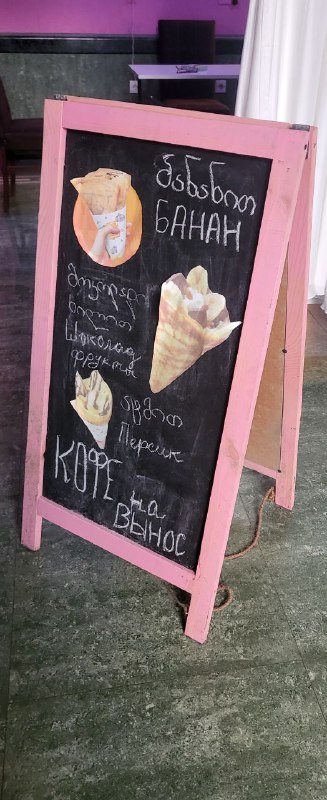 ბანანით
БАНАН
შოკოლადი
ხილით
Шоколад,
фрукты
ატმით
Персик
КОФЕ на
ВЫНОС